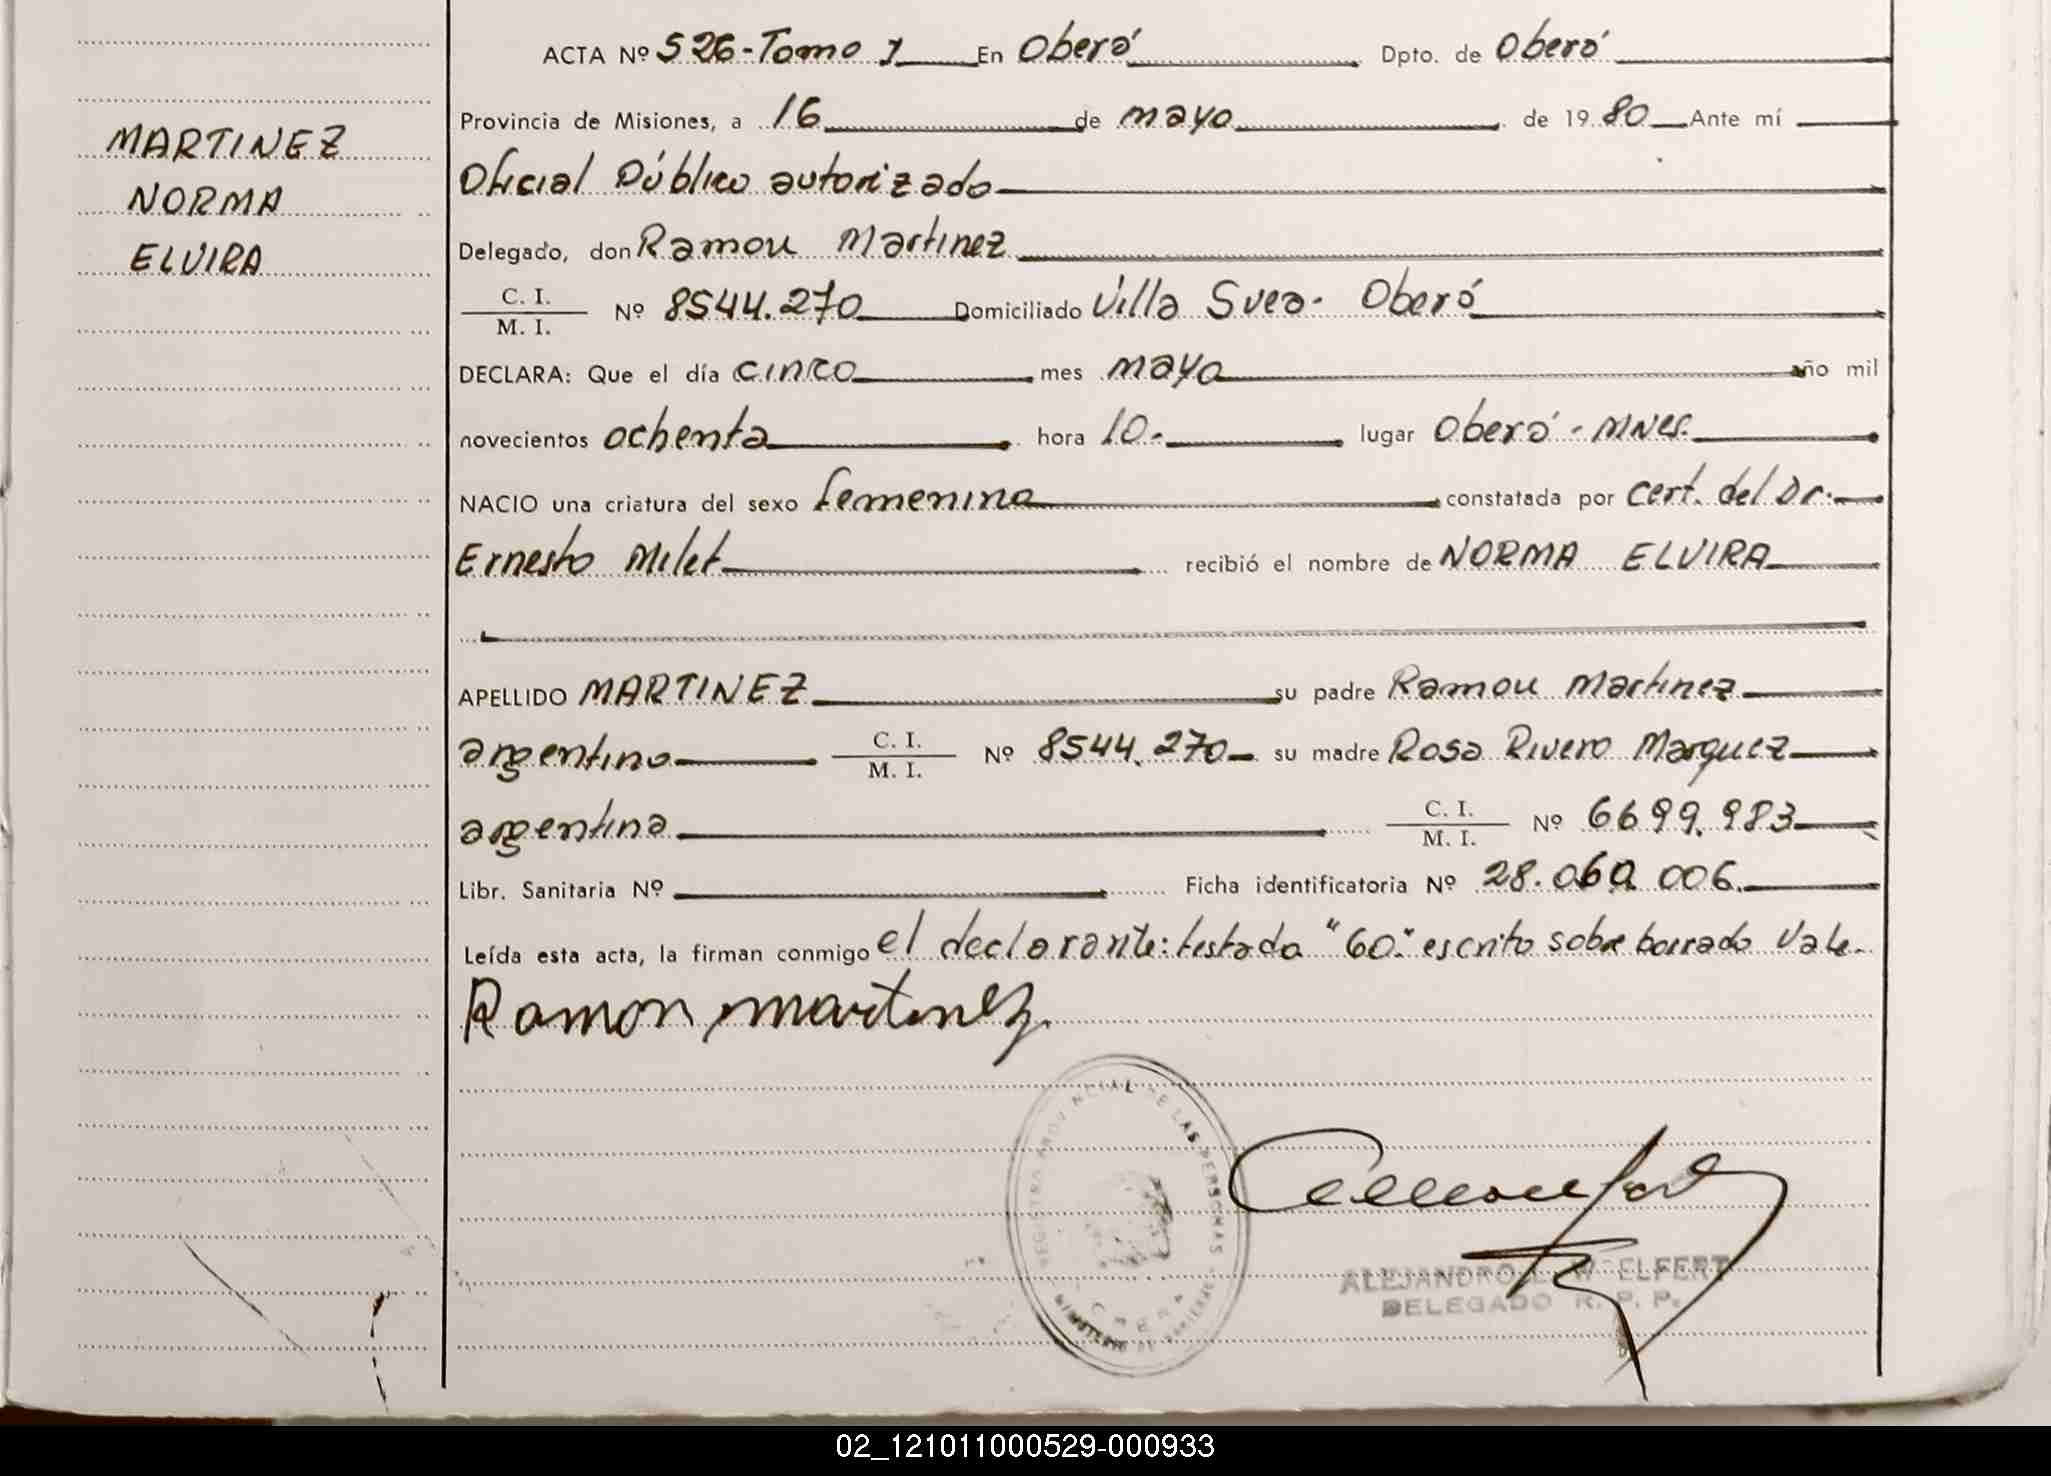 MARTINEZ
NORMA
ELVIRA
ACTA Nº 526-Tomo 1 En Oberá Dpto. de Oberá
Provincia de Misiones, a 16 de mayo de 1980 Ante mí
Oficial Público autorizado
Delegado, don Ramon Martinez
C. I.
M. I. Nº 8544.270 Domiciliado Villa Svea - Oberá
DECLARA: Que el día cinco mes mayo año mil
novecientos ochenta hora 10.- lugar Oberá - Mnes.
NACIO una criatura del sexo femenino constatada por cert. del Dr.
Ernesto Milet recibió el nombre de NORMA ELVIRA
APELLIDO MARTINEZ su padre Ramon Martinez
argentino C. I.
M. I. Nº 8544.270 su madre Rosa Rivero Marquez
argentina C. I.
M. I. Nº 6699.983
Libr. Sanitaria Nº Ficha identificatoria Nº 28.060.006
Leída esta acta, la firman conmigo el declarante: testado "60." escrito sobre borrado Vale.
Ramon martinez
REGISTRO PROVINCIAL DE LAS PERSONAS
MINISTERIO DE GOBIERNO
ALEJANDRO ELFERT
DELEGADO R. P. P.
02_121011000529-000933